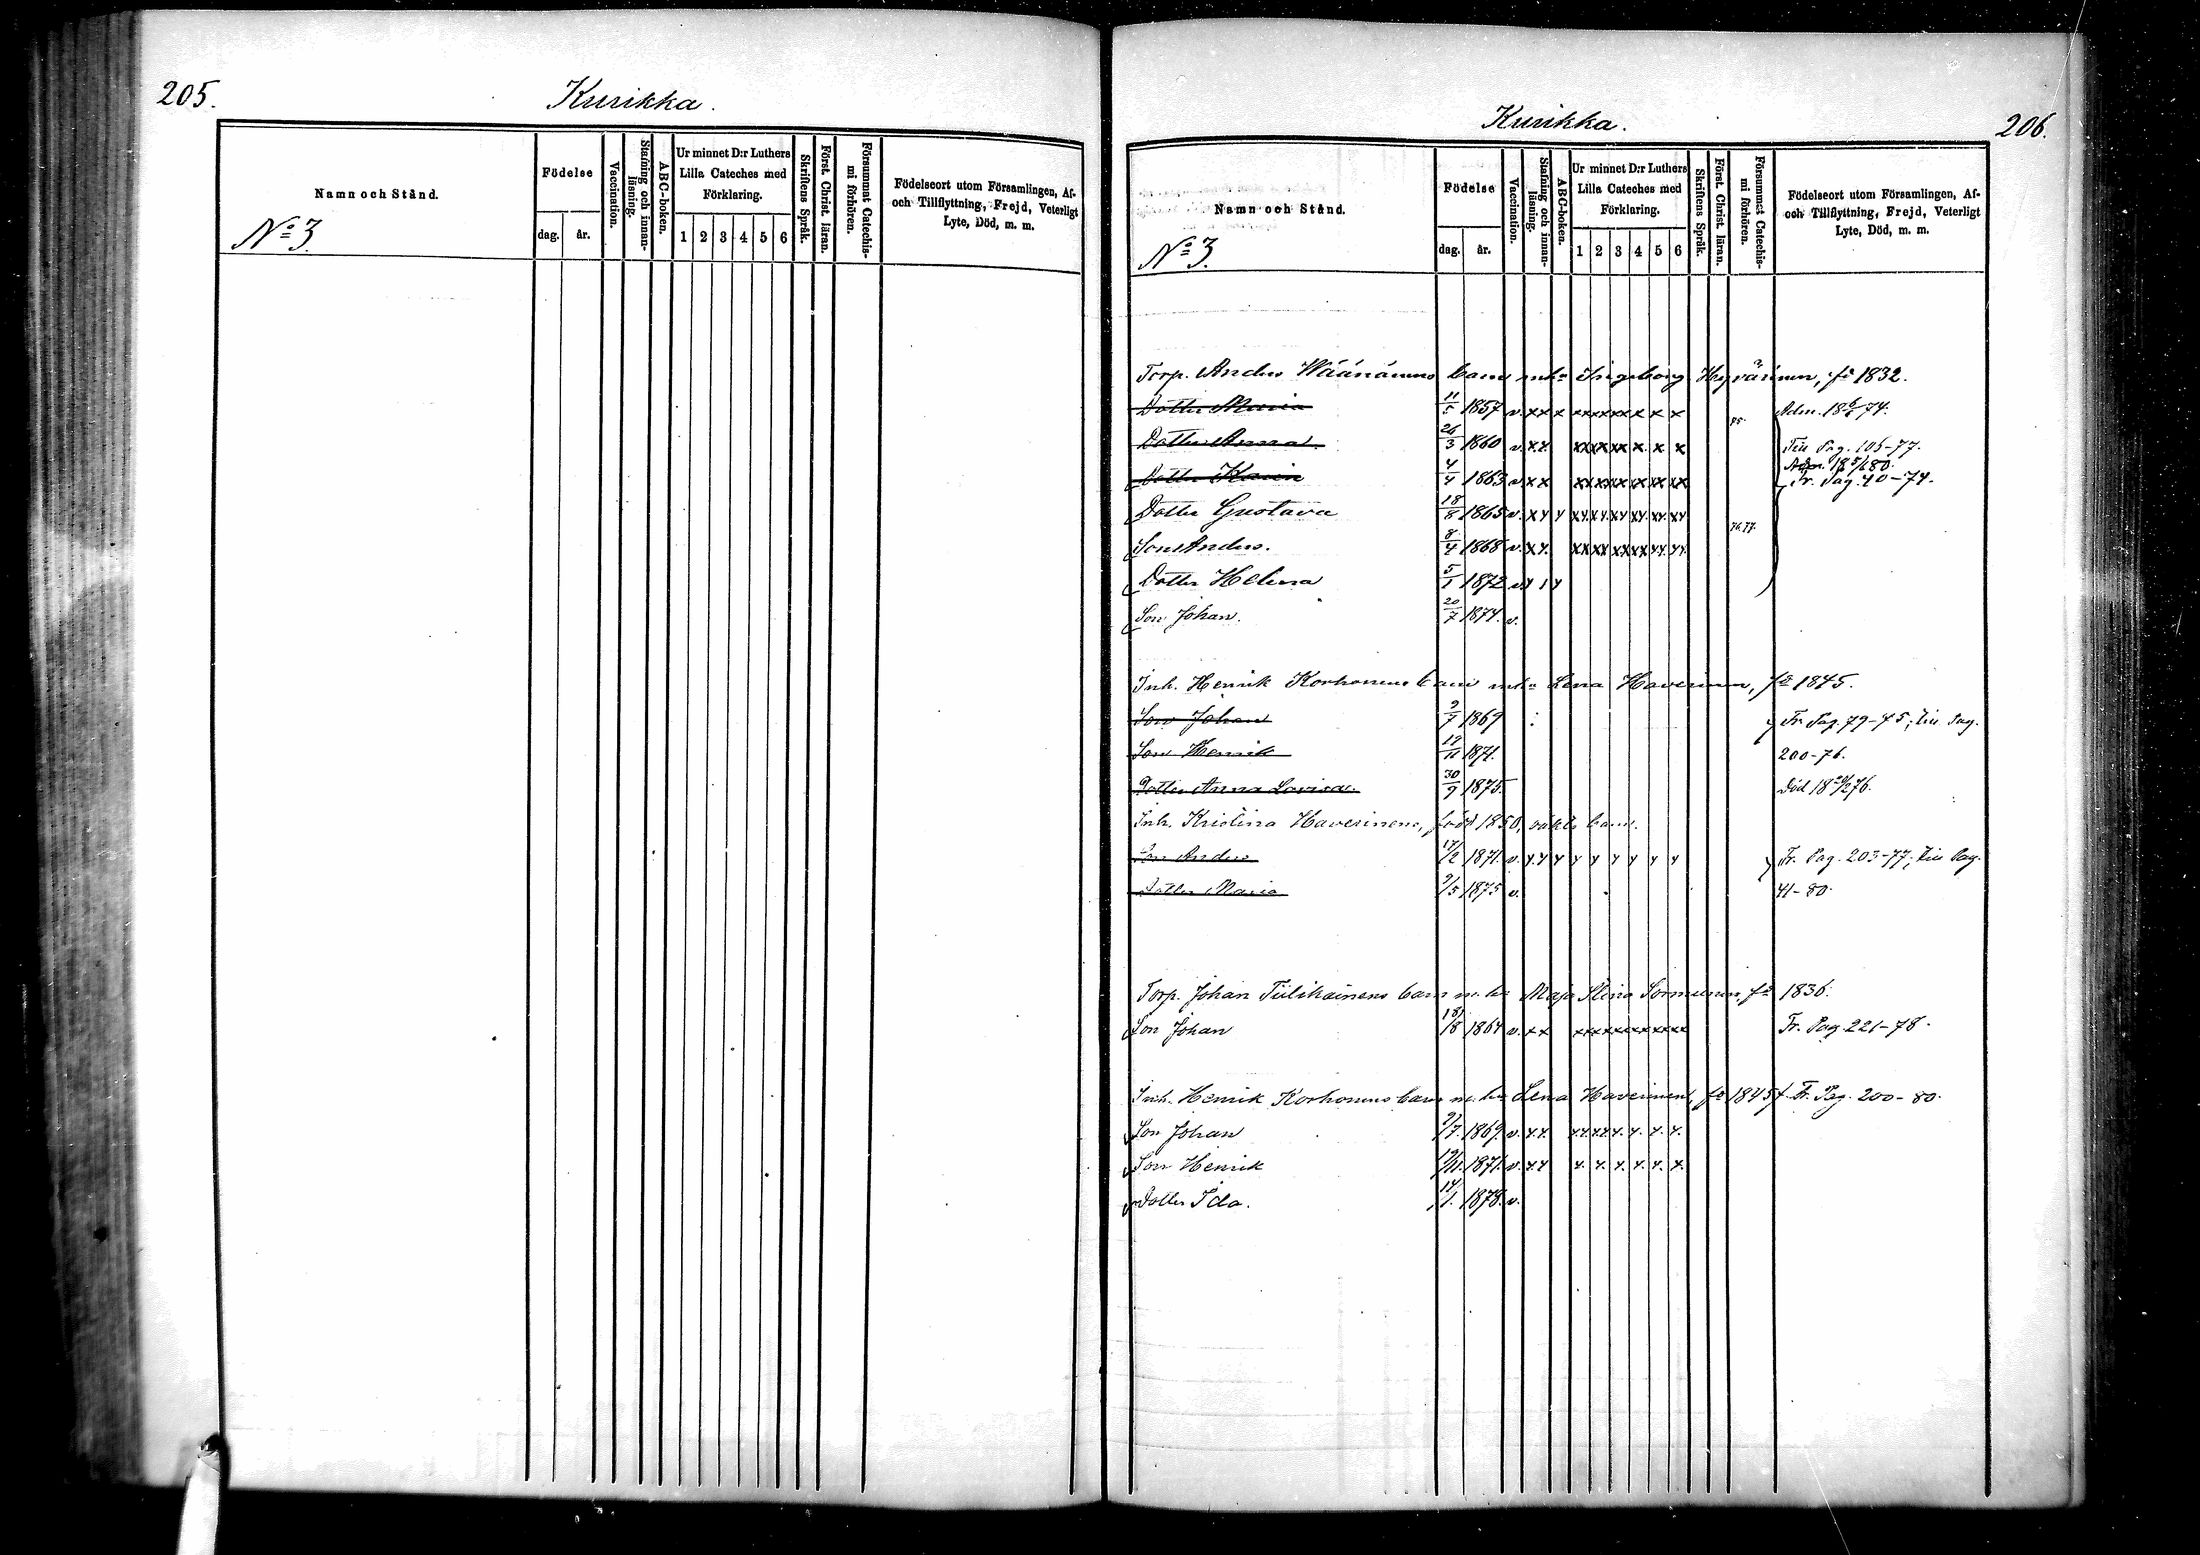 205.
Kurikka.
Namn och Stånd.
Födelse
dag.
år.
Vaccination.
Stafning och innan-
läsning.
ABC-boken.
Ur minnet D:r Luthers
Lilla Cateches med
Förklaring.
1 2 3 4 5 6
Skriftens Språk.
Först. Christ. läran.
Försummat Catechis-
mi förhören.
Födelseort utom Församlingen, Af-
och Tillflyttning, Frejd, Veterligt
Lyte, Död, m. m.
No 3.
Kurikka.
206.
Namn och Stånd.
Födelse
dag.
år.
Vaccination.
Stafning och innan-
läsning.
ABC-boken.
Ur minnet D:r Luthers
Lilla Cateches med
Förklaring.
1 2 3 4 5 6
Skriftens Språk.
Först. Christ. läran.
Försummat Catechis-
mi förhören.
Födelseort utom Församlingen, Af-
och Tillflyttning, Frejd, Veterligt
Lyte, Död, m. m.
No 3.
Torp. Anders Wäänänens barn m. h. Ingeborg Hyvärinen, fö 1832.
Dotter Maria 11/5 1857 v. x x x x x x x x x x x Adm. 18 6/6 74.
75.
Dotter Anna. 26/3 1860 v. x x. x x x x x x x x x Till Pag. 105-77.
Adm. 18 5/6 80.
Dotter Karin 4/4 1863 v. x x x x x x x x x x x x x Fr. Pag. 40-74.
Dotter Gustava 18/8 1865 v. x y y xy xy xy xy xy xy
76.77.
Son Anders. 8/4 1868 v. x y. xx xx xx xx yy yy
Dotter Helena 5/1 1872 v. y 1 y
Son Johan. 20/7 1874. v.
Inh. Henrik Korhonens barn m. h. Lena Haverinen, fö 1845.
Son Johan 9/7 1869 Fr. Pag. 79-75; till Pag.
Son Henrik 19/11 1871. 200-76.
Dotter Anna Lovisa. 30/9 1875. Död 18 /2 76.
Inh. Kristina Haverinens, född 1850, oäkta barn.
Son Anders 17/2 1871. v. y y y y y y y y y Fr. Pag. 203-77; till Pag.
Dotter Maria 9/5 1875 v. 41-80.
Torp. Johan Tiilikainens barn m. h. Maja Stina Sormunen, fö 1836.
Son Johan 18/8 1864 v. x x x x x x x x x x x x Fr. Pag. 221-78.
Inh. Henrik Korhonens barn m. h. Lena Haverinen, fö 1845. Fr. Pag. 200-80.
Son Johan 9/7. 1869. v. y. y. y. y. y. y. y. y. y. y.
Son Henrik 19/11. 1871. v. y. y y. y. y. y. y. y.
Dotter Ida. 14/1. 1878. v.